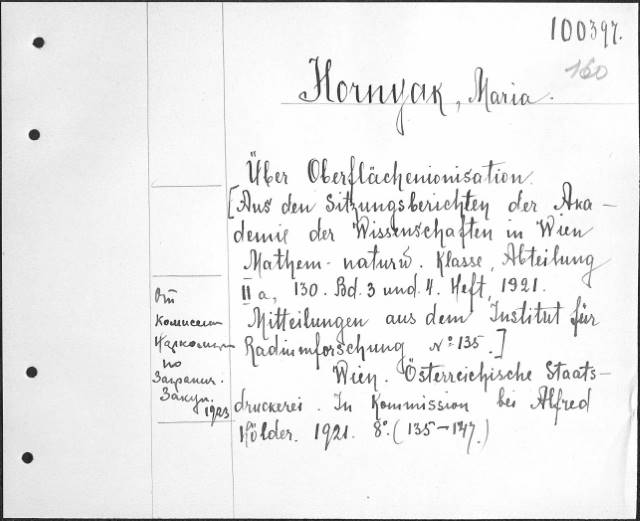 100397.
160
Hornyak, Maria.
Über Oberflächenionisation.
[Aus den Sitzungsberichten der Aka-
demie der Wissenschaften in Wien
Mathem- naturw. Klasse, Abteilung
II a, 130. Bd. 3 und 4. Heft, 1921.
Mitteilungen aus dem Institut für
Radiumforschung № 135.]
Wien. Österreichische Staats-
druckerei. In Kommission bei Alfred
Hölder. 1921. 8º. (135-147.)
От
Комиссии
по
Заграничн.
Закуп.
1923